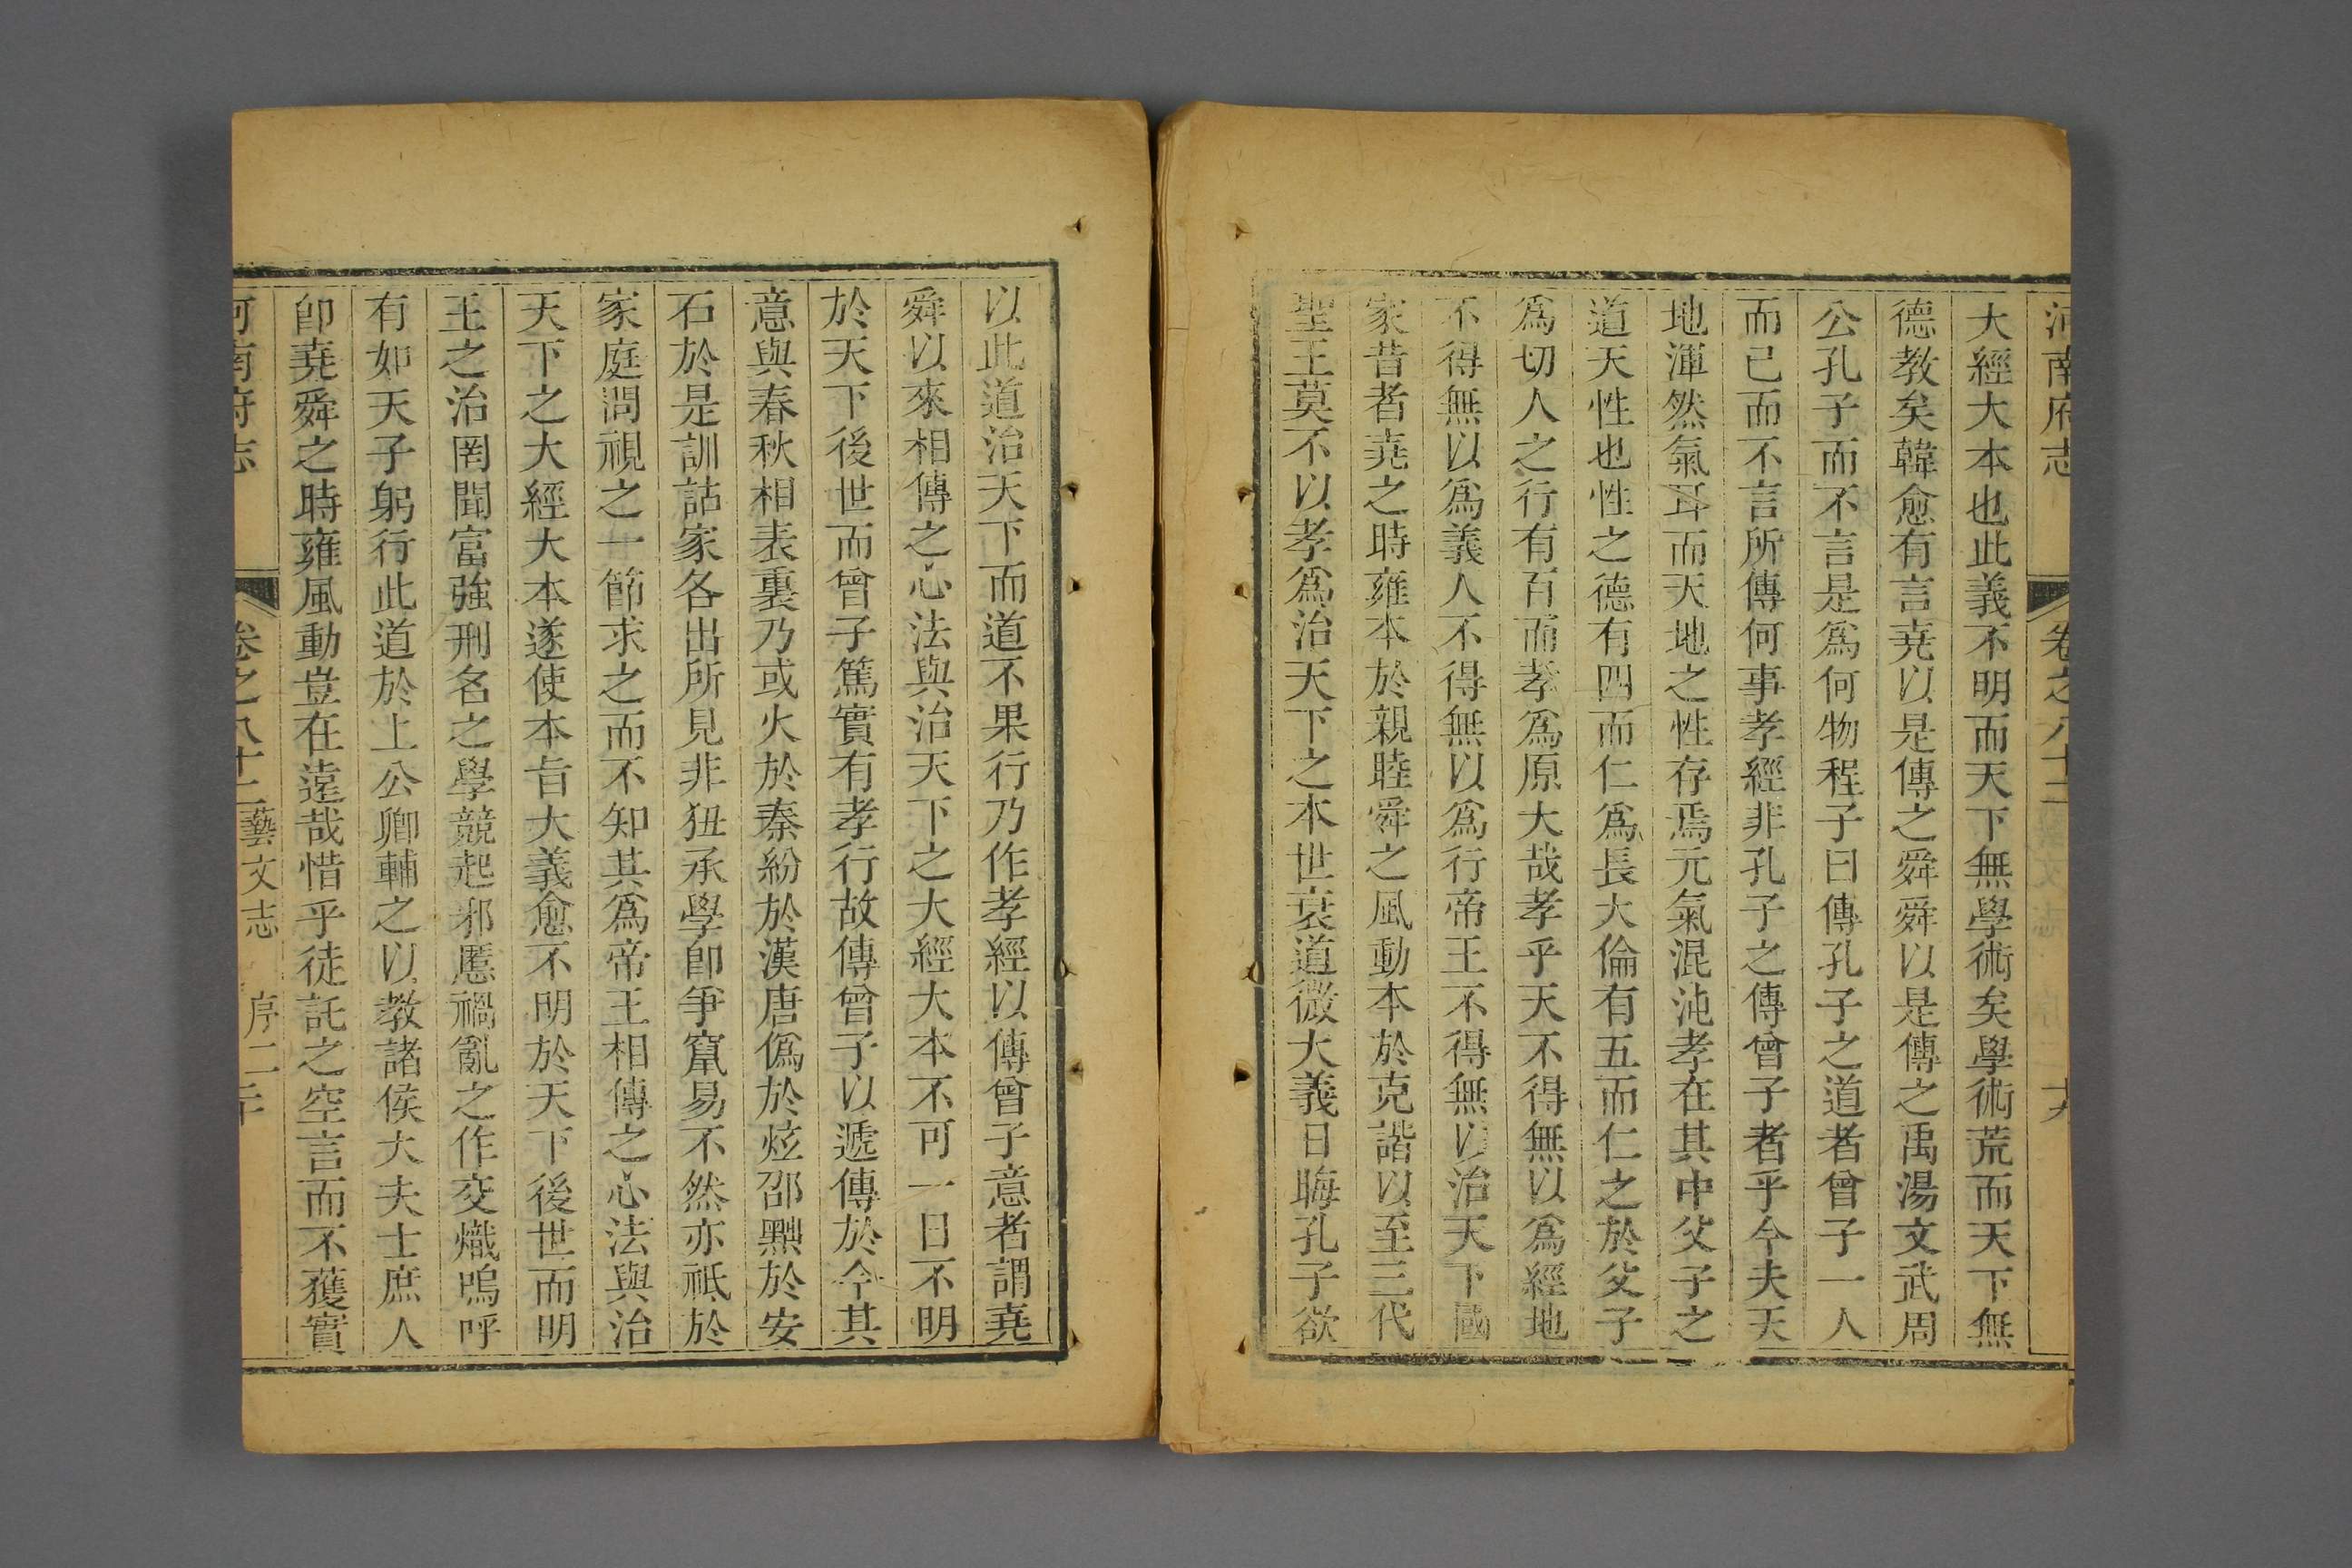 河南府志 卷之八十二
大經大本也此義不明而天下無學術矣學術荒而天下無
德教矣韓愈有言堯以是傳之舜舜以是傳之禹湯文武周
公孔子而不言是爲何物程子曰傳孔子之道者曾子一人
而已而不言所傳何事孝經非孔子之傳曾子者乎今夫天
地渾然氣耳而天地之性存焉元氣混沌孝在其中父子之
道天性也性之德有四而仁爲長大倫有五而仁之於父子
爲切人之行有百而孝爲原大哉孝乎天不得無以爲經地
不得無以爲義人不得無以爲行帝王不得無以治天下國
家昔者堯之時雍本於親睦舜之風動本於克諧以至三代
聖王莫不以孝爲治天下之本世衰道微大義日晦孔子欲
以此道治天下而道不果行乃作孝經以傳曾子意者謂堯
舜以來相傳之心法與治天下之大經大本不可一日不明
於天下後世而曾子篤實有孝行故傳曾子以遞傳於今其
意與春秋相表裏乃或火於秦紛於漢唐僞於炫邵黜於安
石於是訓詁家各出所見非狃承學卽爭竄易不然亦祗於
家庭問視之一節求之而不知其爲帝王相傳之心法與治
天下之大經大本遂使本㫖大義愈不明於天下後世而明
王之治罔聞富強刑名之學競起邪慝禍亂之作交熾嗚呼
有如天子躬行此道於上公卿輔之以教諸侯大夫士庶人
卽堯舜之時雍風動豈在遠哉惜乎徒託之空言而不獲實
河南府志 卷之八十二 藝文志 序二 二十